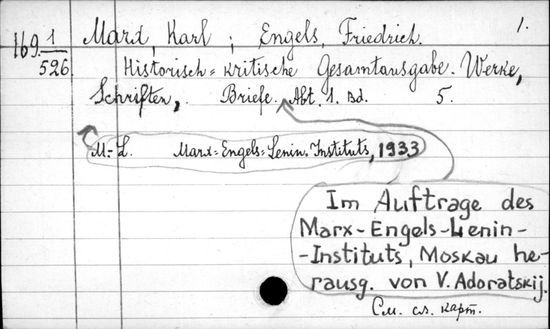 1.
169 1/526 Marx, Karl ; Engels, Friedrich.
Historisch=kritische Gesamtausgabe. Werke,
Schriften, Briefe. Abt. 1. Bd. 5.
M.-L. Marx=Engels=Lenin. Instituts, 1933
Im Auftrage des
Marx-Engels-Lenin-
-Instituts, Moskau he-
rausg. von V. Adoratskij.
См. сл. карт.